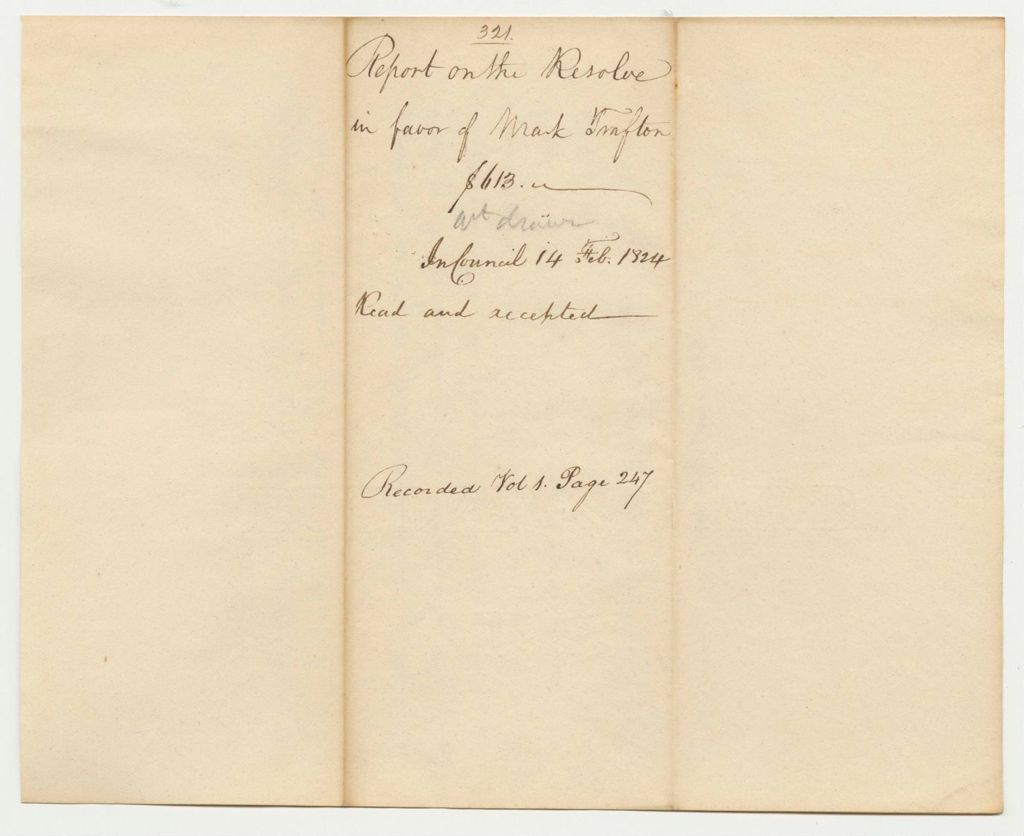 321.
Report on the Resolve
in favor of Mark Trafton
$613.
drawn
In Council 14 Feb. 1824
Read and accepted
Recorded Vol 1. Page 247